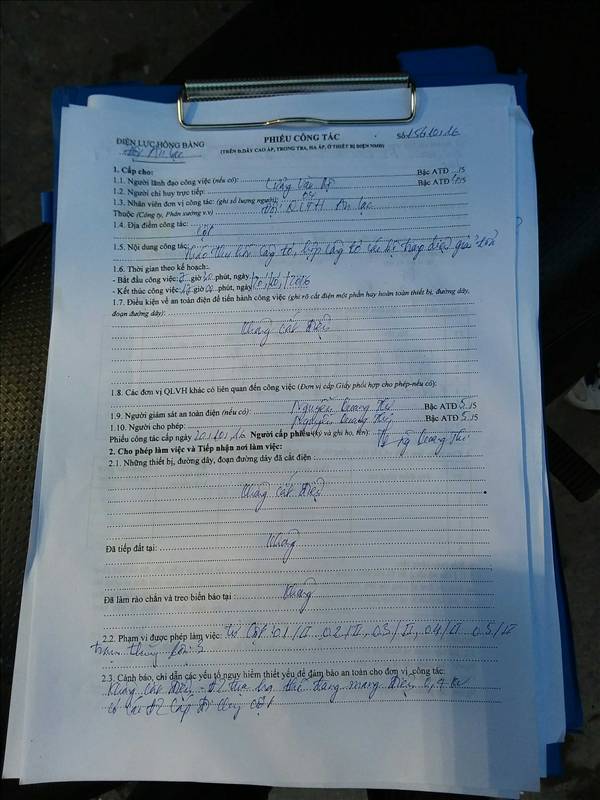 ĐIỆN LỰC HỒNG BÀNG
Đội An Lạc
PHIẾU CÔNG TÁC
(TRÊN Đ.DÂY CAO ÁP, TRONG TBA, HẠ ÁP, Ở THIẾT BỊ ĐIỆN NMĐ)
Số:
1. Cấp cho:
1.1. Người lãnh đạo công việc (nếu có): Bậc ATĐ /5
1.2. Người chỉ huy trực tiếp: Văn Bậc ATĐ /5
1.3. Nhân viên đơn vị công tác: (ghi số lượng người):
Thuộc (Công ty, Phân xưởng v.v) Đội QLTH An Lạc
1.4. Địa điểm công tác: Cột
1.5. Nội dung công tác: công tơ, công tơ
1.6. Thời gian theo kế hoạch:
- Bắt đầu công việc: giờ 30 phút, ngày 20/10/2016
- Kết thúc công việc: giờ 00 phút, ngày 20/10/2016
1.7. Điều kiện về an toàn điện để tiến hành công việc (ghi rõ cắt điện một phần hay hoàn toàn thiết bị, đường dây,
đoạn đường dây):
Không cắt điện
1.8. Các đơn vị QLVH khác có liên quan đến công việc (Đơn vị cấp Giấy phối hợp cho phép-nếu có):
1.9. Người giám sát an toàn điện (nếu có): Nguyễn Quang Bậc ATĐ 5/5
1.10. Người cho phép: Nguyễn Quang Bậc ATĐ 5/5
Phiếu công tác cấp ngày 20/10/16 Người cấp phiếu (ký và ghi họ, tên) Quang
2. Cho phép làm việc và Tiếp nhận nơi làm việc:
2.1. Những thiết bị, đường dây, đoạn đường dây đã cắt điện:
Không cắt điện
Đã tiếp đất tại: Không
Đã làm rào chắn và treo biển báo tại: Không
2.2. Phạm vi được phép làm việc: từ Cột 01/II 02/II, 03/II, 04/II 05/II
2.3. Cảnh báo, chỉ dẫn các yếu tố nguy hiểm thiết yếu để đảm bảo an toàn cho đơn vị công tác:
Không cắt điện - ĐZ hạ thế đang mang điện 0,4 kV
ĐZ cáp đi cột